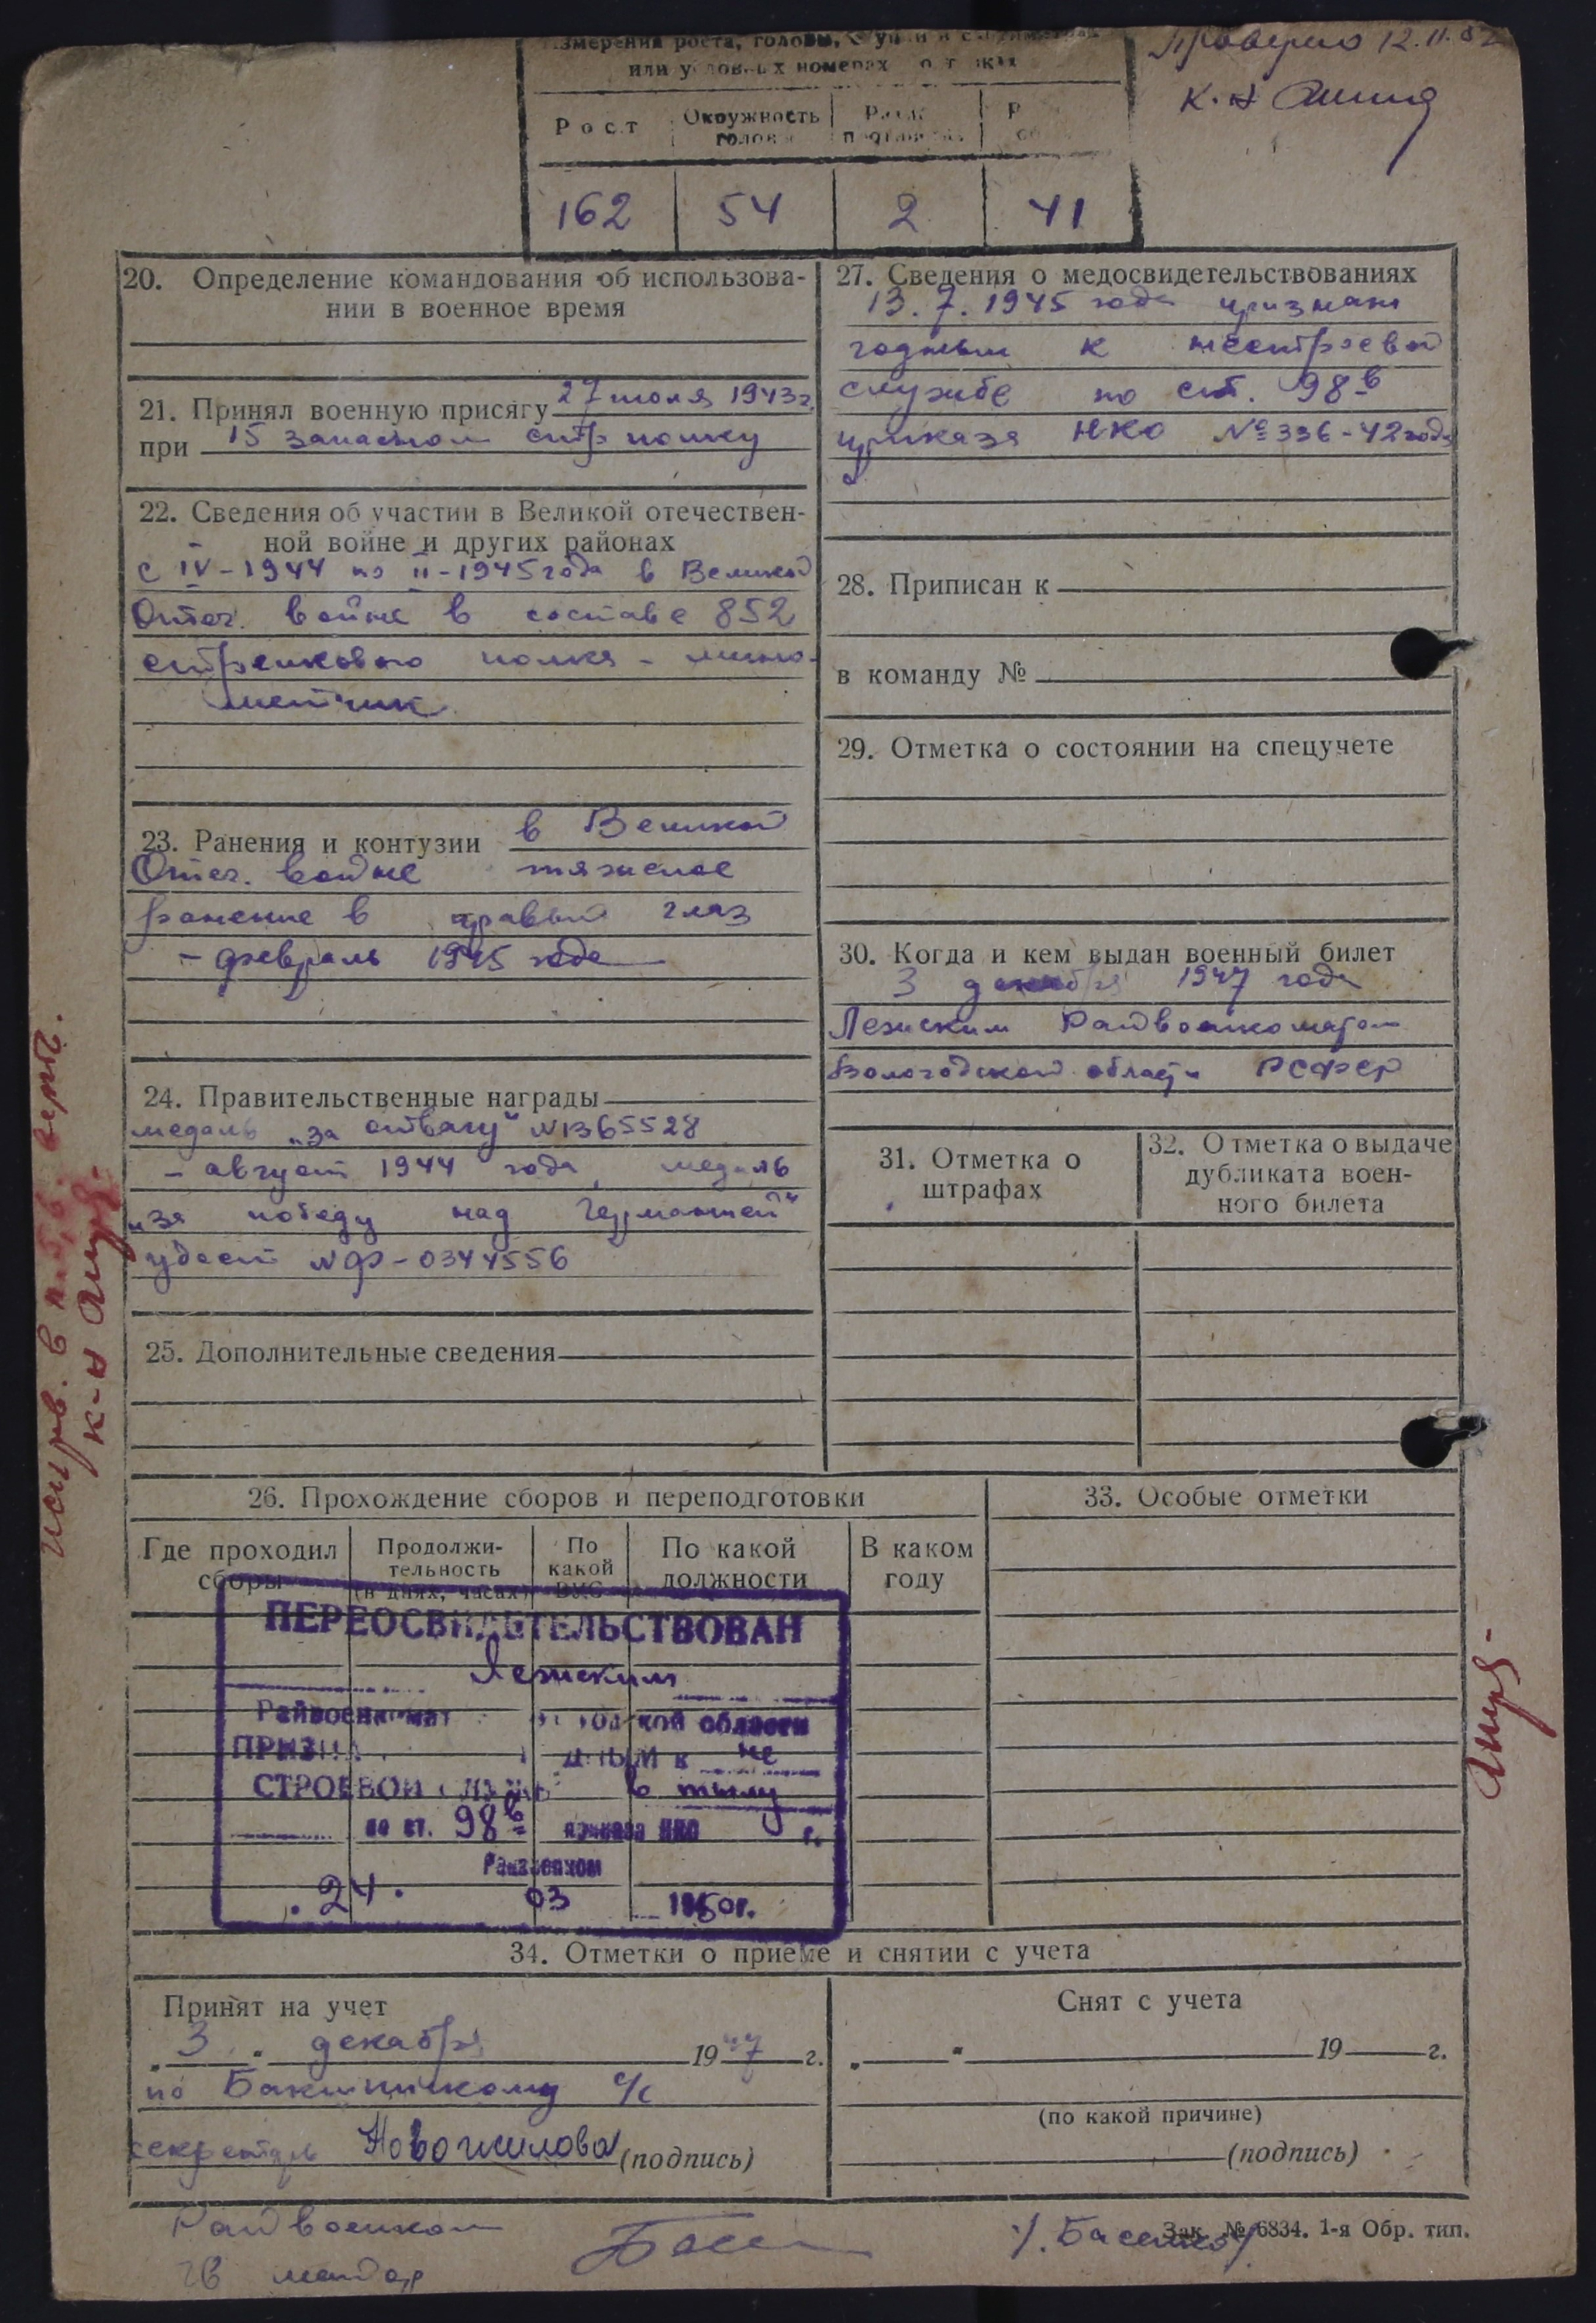 Проверено 12.11.52
К-н
измерения роста, головы,
или условных номерах
Рост
Окружность головы
162
54
2
41
20. Определение командования об использова-
нии в военное время
21. Принял военную присягу 27 июля 1943 г.
при 15 запасном стр полку
22. Сведения об участии в Великой отечествен-
ной войне и других районах
с IV-1944 по II-1945 года в Великой
Отеч. войне в составе 852
стрелкового полка - мино-
метчик
23. Ранения и контузии в Великой
Отеч. войне тяжелое
ранение в правый глаз
- февраль 1945 года
24. Правительственные награды
медаль „за отвагу" №1365528
- август 1944 года, медаль
„за победу над Германией"
удост №Ф-0344556
25. Дополнительные сведения
27. Сведения о медосвидетельствованиях
13.7.1945 года признан
годным к нестроевой
службе по ст. 98в
приказа НКО №336-42 года
28. Приписан к
в команду №
29. Отметка о состоянии на спецучете
30. Когда и кем выдан военный билет
3 декабря 1947 года
Лежским Райвоенкоматом
Вологодской области РСФСР
31. Отметка о
штрафах
32. Отметка о выдаче
дубликата воен-
ного билета
26. Прохождение сборов и переподготовки
Где проходил
сборы
Продолжи-
тельность
(в днях, часах)
По
какой
ВУС
По какой
должности
В каком
году
33. Особые отметки
ПЕРЕОСВИДЕТЕЛЬСТВОВАН
Лежским
Райвоенкомат области
ПРИЗНАН к не
СТРОЕВОЙ службе в тылу
по ст. 98в приказа НКО г.
Райвоенком
24. 03 1950г.
34. Отметки о приеме и снятии с учета
Принят на учет
„3" декабря 1947 г.
по с/с
секретарь Новожилова (подпись)
Снят с учета
„ " 19 г.
(по какой причине)
(подпись)
Райвоенком
гв майор
Зак. № 6834. 1-я Обр. тип.
испр. в
к-н